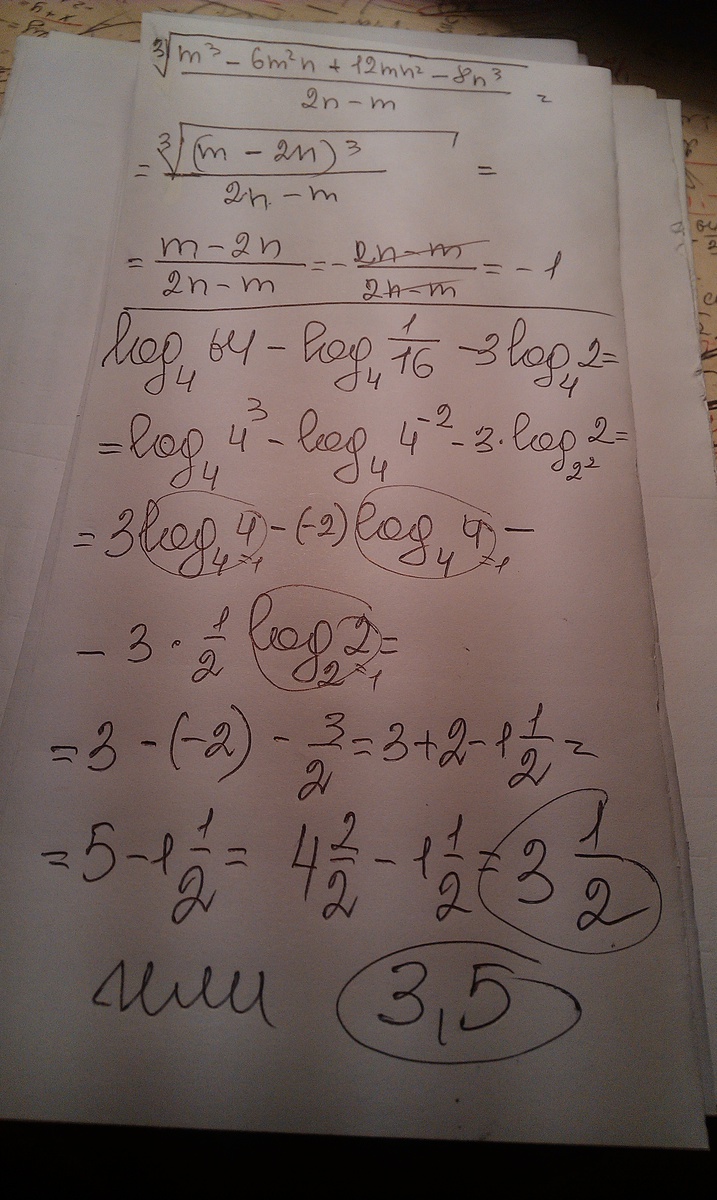 ∛(m³ − 6m²n + 12mn² − 8n³) / (2n − m) =
= ∛(m − 2n)³ / (2n − m) =
= (m − 2n) / (2n − m) = − (2n − m) / (2n − m) = − 1
log₄ 64 − log₄ 1/16 − 3 log₄ 2 =
= log₄ 4³ − log₄ 4⁻² − 3 · log_{2²} 2 =
= 3 log₄ 4 =1 − (−2) log₄ 4 =1 −
− 3 · 1/2 log₂ 2 =1 =
= 3 − (−2) − 3/2 = 3 + 2 − 1 1/2 =
= 5 − 1 1/2 = 4 2/2 − 1 1/2 = 3 1/2
или 3,5